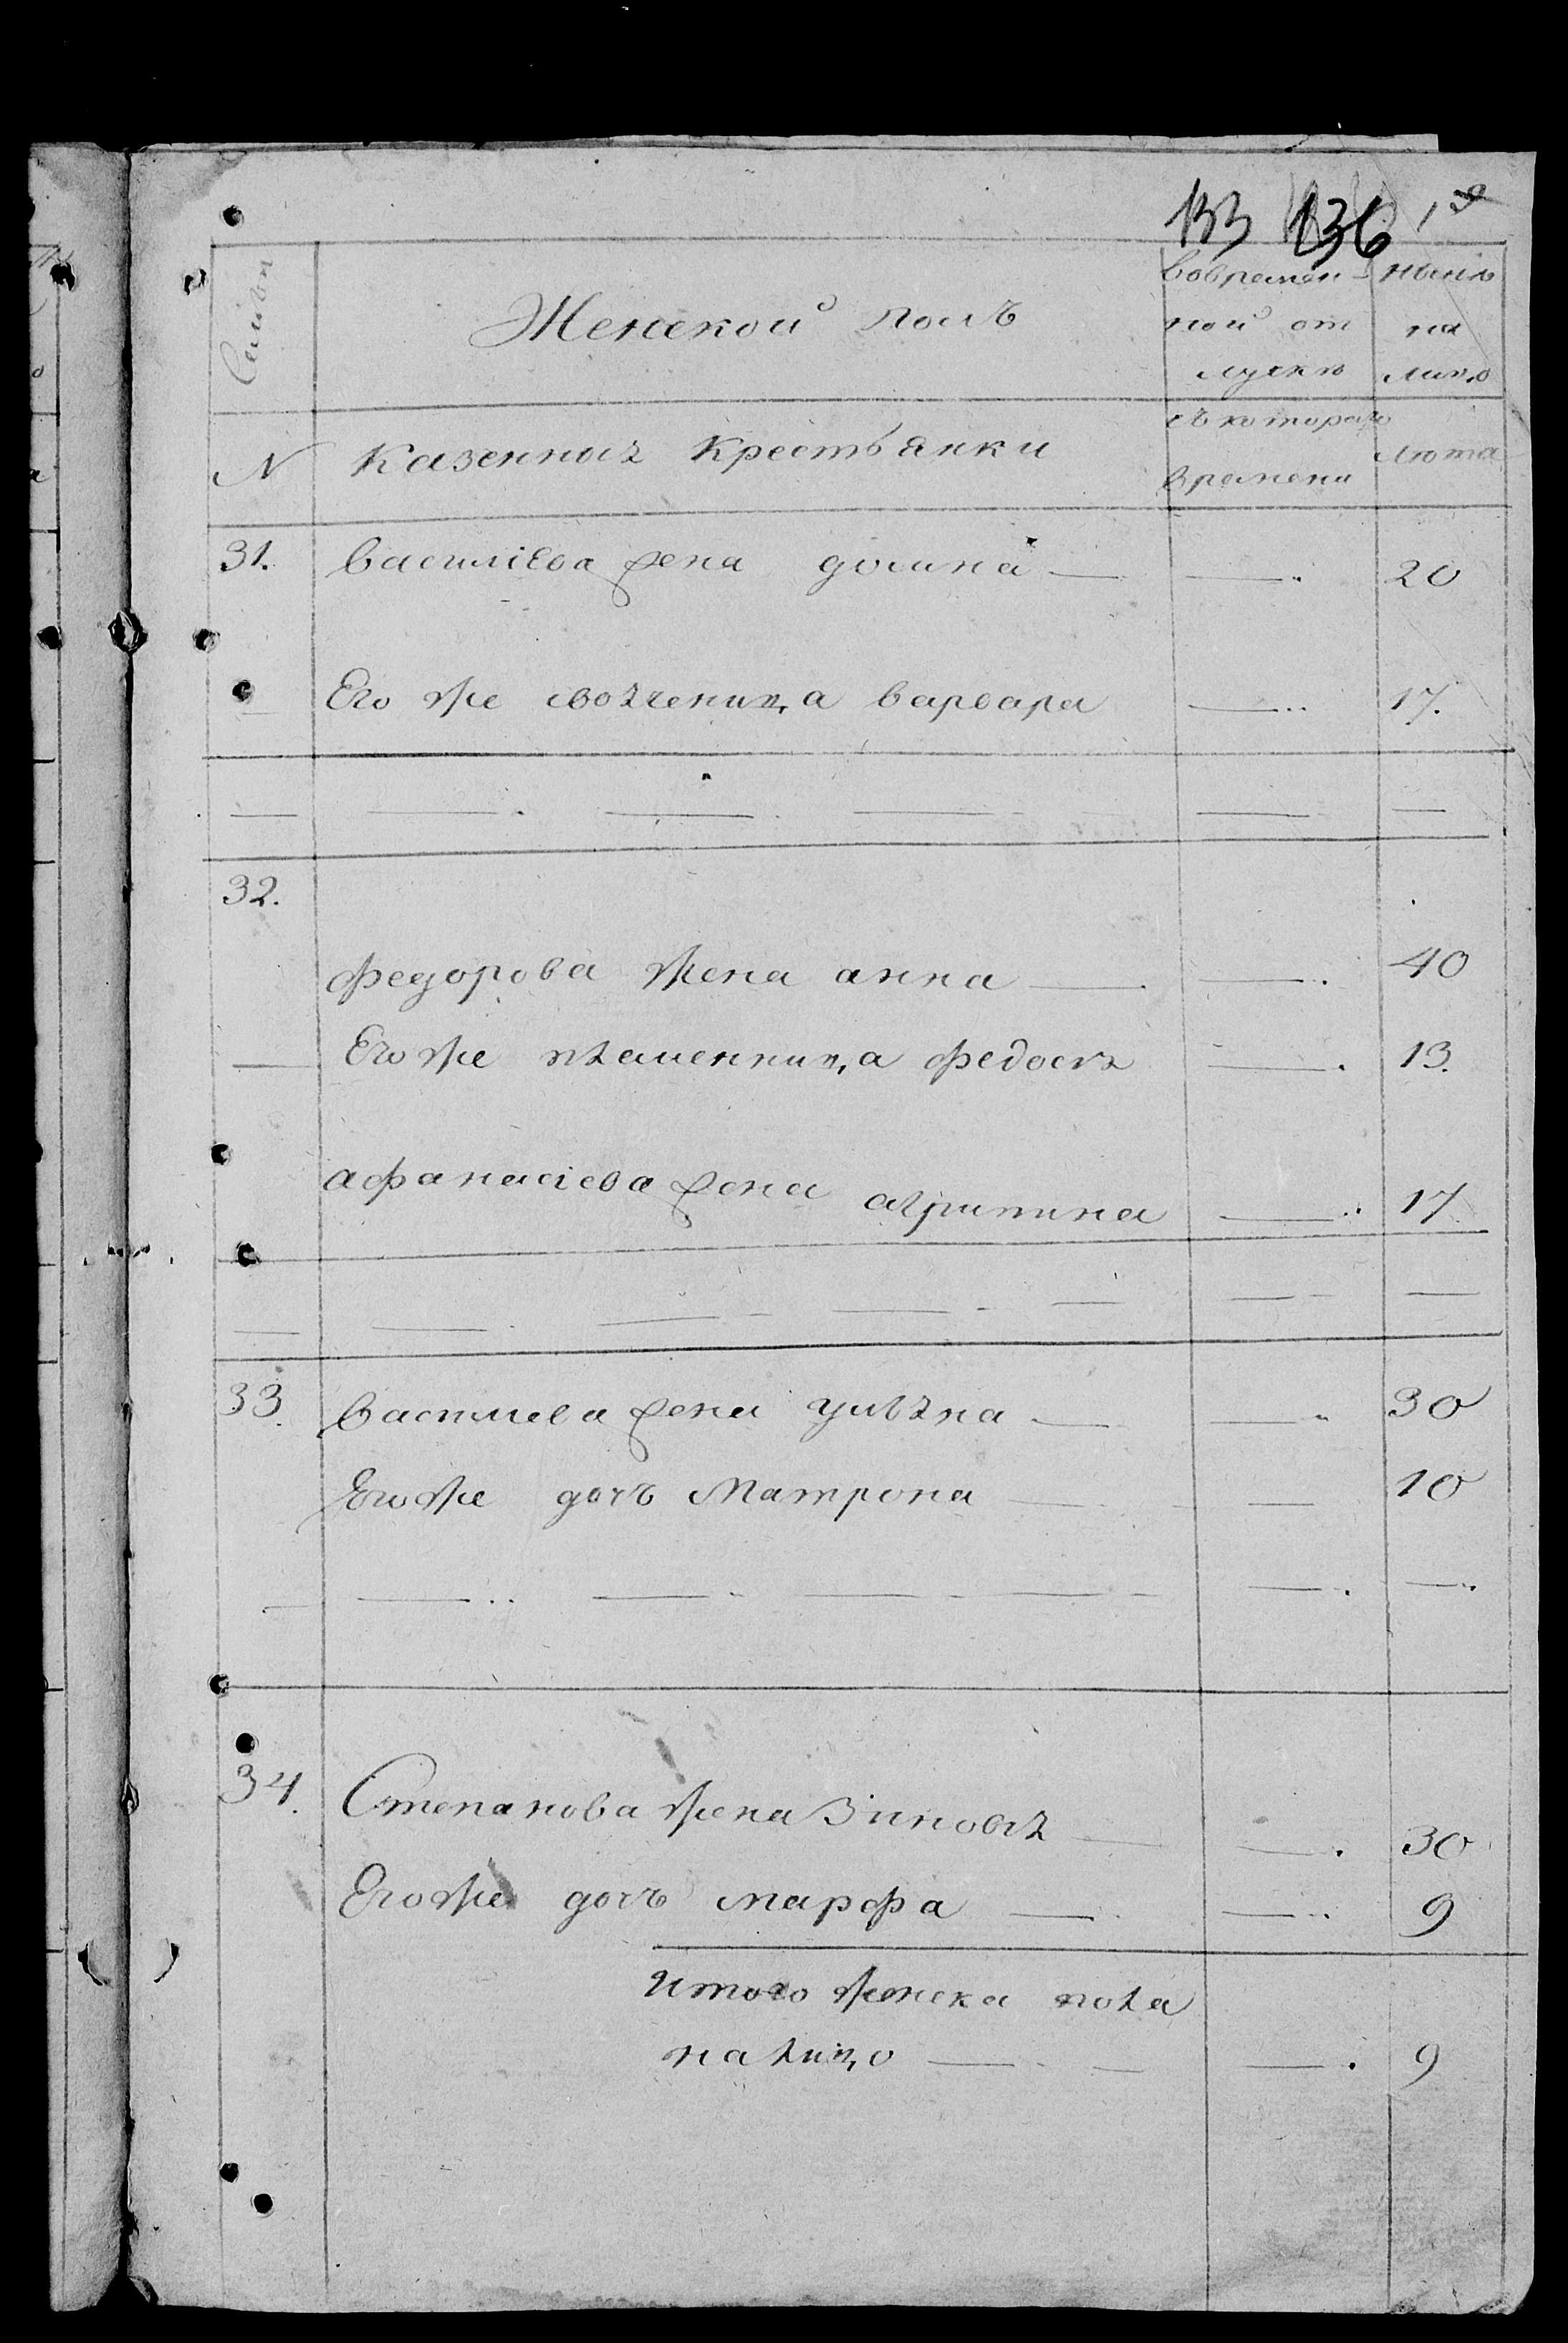 133 136 19
Семьи
Женской полъ
вовремян-
ной от
лучкѣ
ныне
на
лицо
N
Казенныя Крестьянки
съ котораго
времени
лѣта
31. василіева жена домна — — 20
Его же своячница варвара — 17.
32.
федорова жена анна — — 40
Его же племенница федося — 13.
афанасіева жена агрипина — 17
33. василиева жена улияна — — 30
Его же дочь Матрона — — 10
34. Степанова жена Зиновя — — 30
Его же дочь марфа — — 9
Итого женска пола
на лицо — — 9